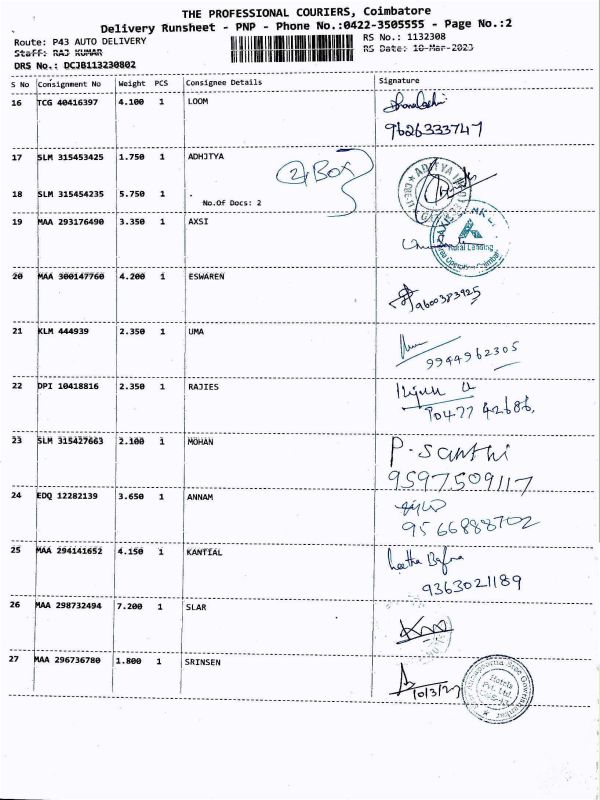 THE PROFESSIONAL COURIERS, Coimbatore
Delivery Runsheet - PNP - Phone No.:0422-3505555 - Page No.:2
Route: P43 AUTO DELIVERY
RS No.: 1132308
Staff: RAJ KUMAR
RS Date: 10-Mar-2023
DRS No.: DCJB113230802
S No Consignment No Weight PCS Consignee Details Signature
16 TCG 40416397 4.100 1 LOOM
9626333747
17 SLM 315453425 1.750 1 ADHITYA
2 Box
18 SLM 315454235 5.750 1 .
No.Of Docs: 2
19 MAA 293176490 3.350 1 AXSI
Rural Lending
20 MAA 300147760 4.200 1 ESWAREN
9600383925
21 KLM 444939 2.350 1 UMA
9944962305
22 DPI 10418816 2.350 1 RAJIES
70477 42686.
23 SLM 315427663 2.100 1 MOHAN
P. Santhi
9597509117
24 EDQ 12282139 3.650 1 ANNAM
9566888702
25 MAA 294141652 4.150 1 KANTIAL
9363021189
26 MAA 298732494 7.200 1 SLAR
27 MAA 296736780 1.800 1 SRINSEN
10/3/23
Hotels
Pvt. Ltd.